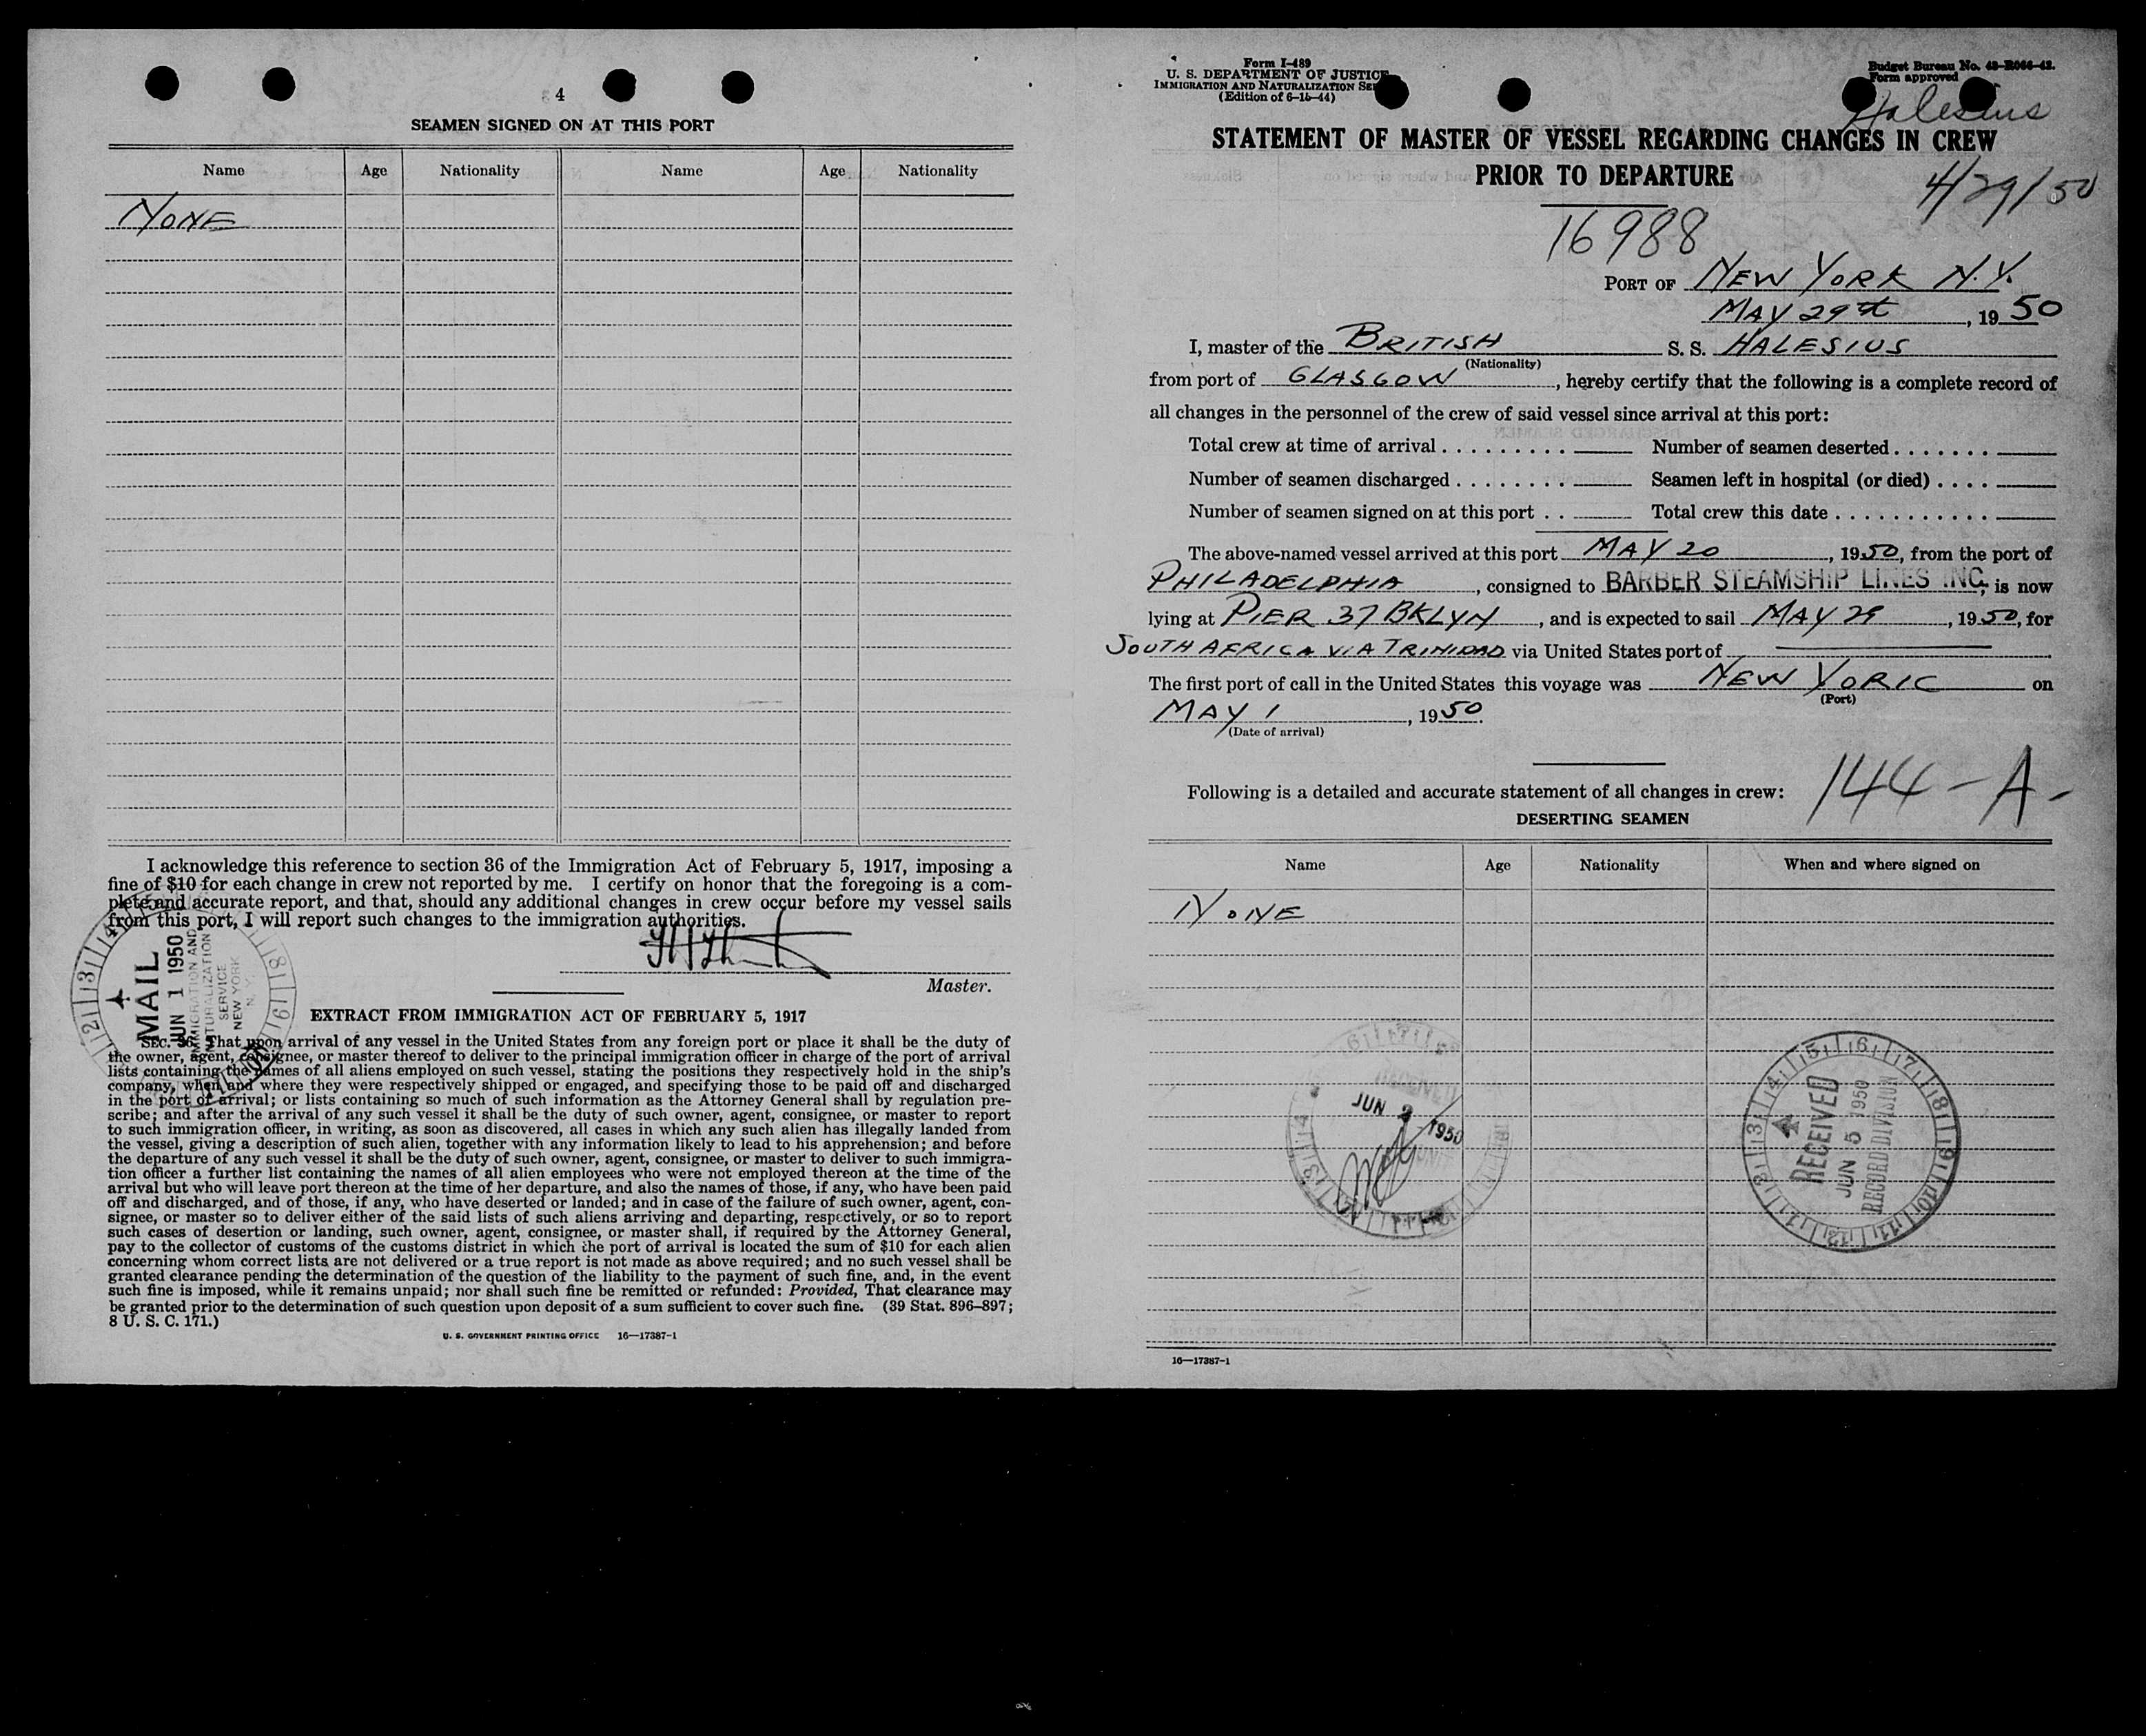 4
SEAMEN SIGNED ON AT THIS PORT
Name Age Nationality Name Age Nationality
NONE
I acknowledge this reference to section 36 of the Immigration Act of February 5, 1917, imposing a
fine of $10 for each change in crew not reported by me. I certify on honor that the foregoing is a com-
plete and accurate report, and that, should any additional changes in crew occur before my vessel sails
from this port, I will report such changes to the immigration authorities.
Master.
MAIL
JUN 1 1950
IMMIGRATION AND
NATURALIZATION
SERVICE
NEW YORK
N. Y.
EXTRACT FROM IMMIGRATION ACT OF FEBRUARY 5, 1917
SEC. 36. That upon arrival of any vessel in the United States from any foreign port or place it shall be the duty of
the owner, agent, consignee, or master thereof to deliver to the principal immigration officer in charge of the port of arrival
lists containing the names of all aliens employed on such vessel, stating the positions they respectively hold in the ship's
company, when and where they were respectively shipped or engaged, and specifying those to be paid off and discharged
in the port of arrival; or lists containing so much of such information as the Attorney General shall by regulation pre-
scribe; and after the arrival of any such vessel it shall be the duty of such owner, agent, consignee, or master to report
to such immigration officer, in writing, as soon as discovered, all cases in which any such alien has illegally landed from
the vessel, giving a description of such alien, together with any information likely to lead to his apprehension; and before
the departure of any such vessel it shall be the duty of such owner, agent, consignee, or master to deliver to such immigra-
tion officer a further list containing the names of all alien employees who were not employed thereon at the time of the
arrival but who will leave port thereon at the time of her departure, and also the names of those, if any, who have been paid
off and discharged, and of those, if any, who have deserted or landed; and in case of the failure of such owner, agent, con-
signee, or master so to deliver either of the said lists of such aliens arriving and departing, respectively, or so to report
such cases of desertion or landing, such owner, agent, consignee, or master shall, if required by the Attorney General,
pay to the collector of customs of the customs district in which the port of arrival is located the sum of $10 for each alien
concerning whom correct lists are not delivered or a true report is not made as above required; and no such vessel shall be
granted clearance pending the determination of the question of the liability to the payment of such fine, and, in the event
such fine is imposed, while it remains unpaid; nor shall such fine be remitted or refunded: Provided, That clearance may
be granted prior to the determination of such question upon deposit of a sum sufficient to cover such fine. (39 Stat. 896–897;
8 U. S. C. 171.)
U. S. GOVERNMENT PRINTING OFFICE 16—17387-1
Form I-489
U. S. DEPARTMENT OF JUSTICE
IMMIGRATION AND NATURALIZATION
(Edition of 6-15-44)
Budget Bureau No. 43-R066-42.
Form approved
Halesius
STATEMENT OF MASTER OF VESSEL REGARDING CHANGES IN CREW
PRIOR TO DEPARTURE
4/29/50
16988
PORT OF NEW YORK N.Y.
MAY 29th, 1950
I, master of the BRITISH S. S. HALESIUS
(Nationality)
from port of GLASGOW, hereby certify that the following is a complete record of
all changes in the personnel of the crew of said vessel since arrival at this port:
Total crew at time of arrival . . . . . . . . . Number of seamen deserted . . . . . . .
Number of seamen discharged . . . . . . . . Seamen left in hospital (or died) . . . .
Number of seamen signed on at this port . . Total crew this date . . . . . . . . . . .
The above-named vessel arrived at this port MAY 20, 1950, from the port of
PHILADELPHIA, consigned to BARBER STEAMSHIP LINES INC, is now
lying at PIER 37 BKLYN, and is expected to sail MAY 29, 1950, for
SOUTH AFRICA VIA TRINIDAD via United States port of
The first port of call in the United States this voyage was NEW YORK on
(Port)
MAY 1, 1950.
(Date of arrival)
Following is a detailed and accurate statement of all changes in crew: 144-A-
DESERTING SEAMEN
Name Age Nationality When and where signed on
NONE
RECEIVED
JUN 2 1950
RECEIVED
JUN 5 1950
RECORD DIVISION
16—17387-1